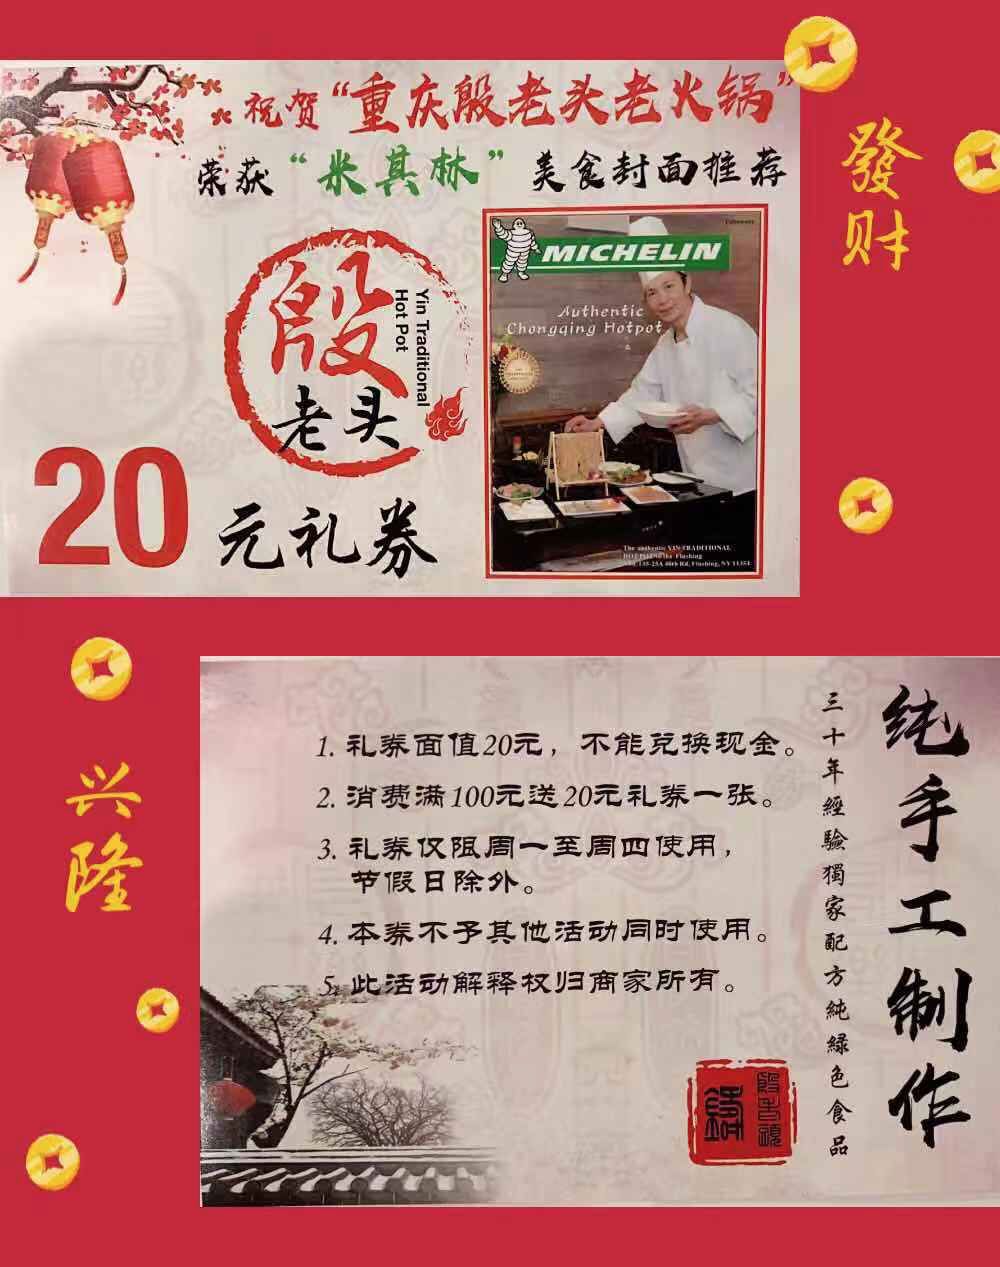 祝贺“重庆殷老头老火锅”
荣获“米其林”美食封面推荐
發财
MICHELIN
Authentic
Chongqing Hotpot
殷
老头
Yin Traditional
Hot Pot
20元礼券
The authentic YIN TRADITIONAL
HOT POT
Flushing
135-25A 40th Rd, Flushing, NY 11354
兴隆
纯手工制作
三十年經驗獨家配方純緑色食品
1. 礼券面值20元，不能兑换现金。
2. 消费满100元送20元礼券一张。
3. 礼券仅限周一至周四使用，
节假日除外。
4. 本券不予其他活动同时使用。
5. 此活动解释权归商家所有。